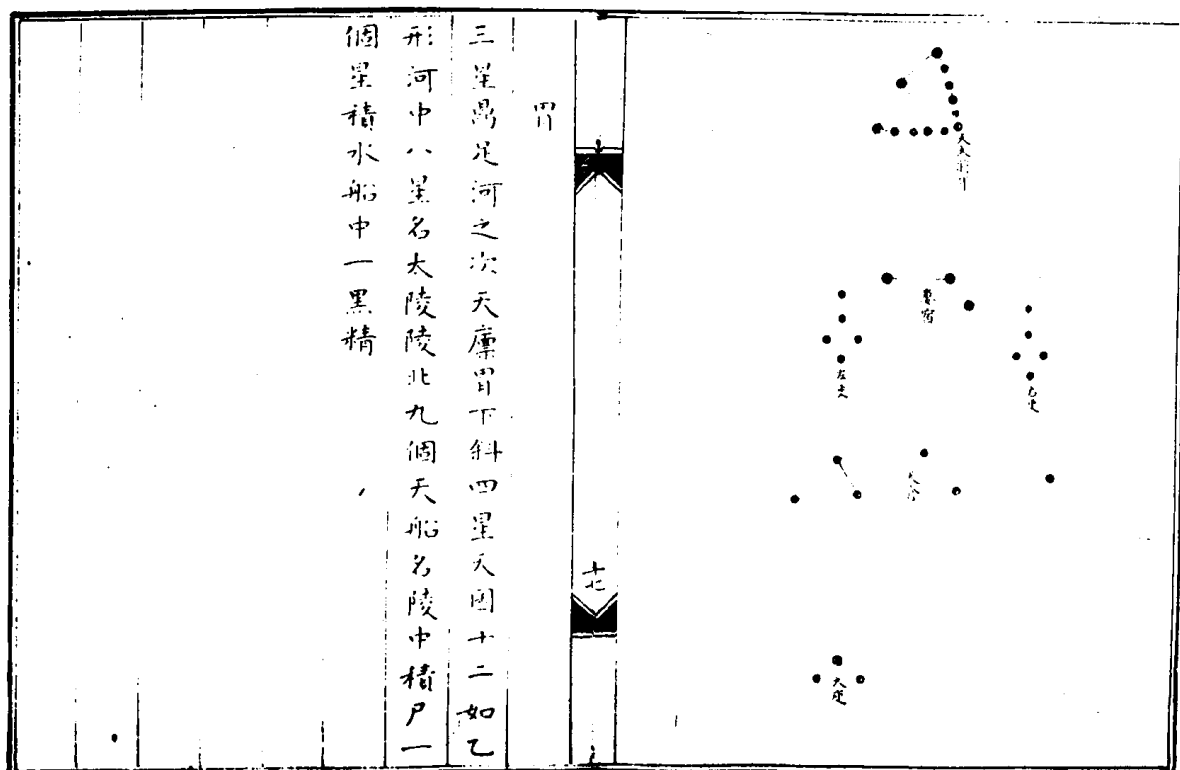 天大將軍
婁宿
右更
左更
天倉
天庾
十七
胃
三星鼎足河之次天廩胃下斜四星天囷十二如乙
形河中八星名太陵陵北九個天船名陵中積尸一
個星積水船中一黑精